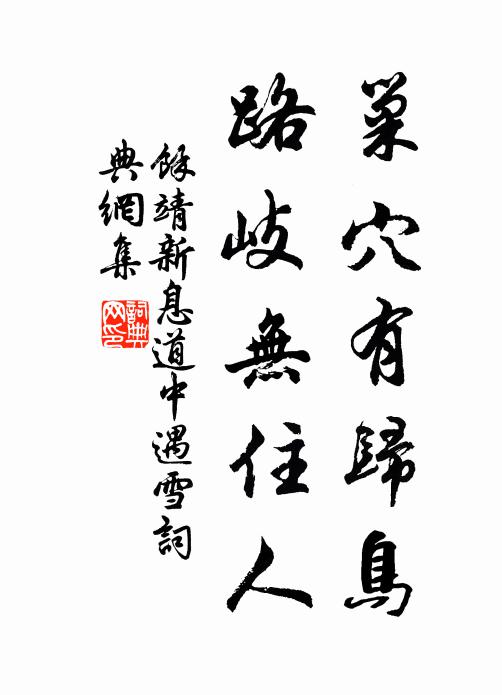 巢穴有歸鳥
路岐無住人
餘靖新息道中遇雪詞
典網集
詞典
网印